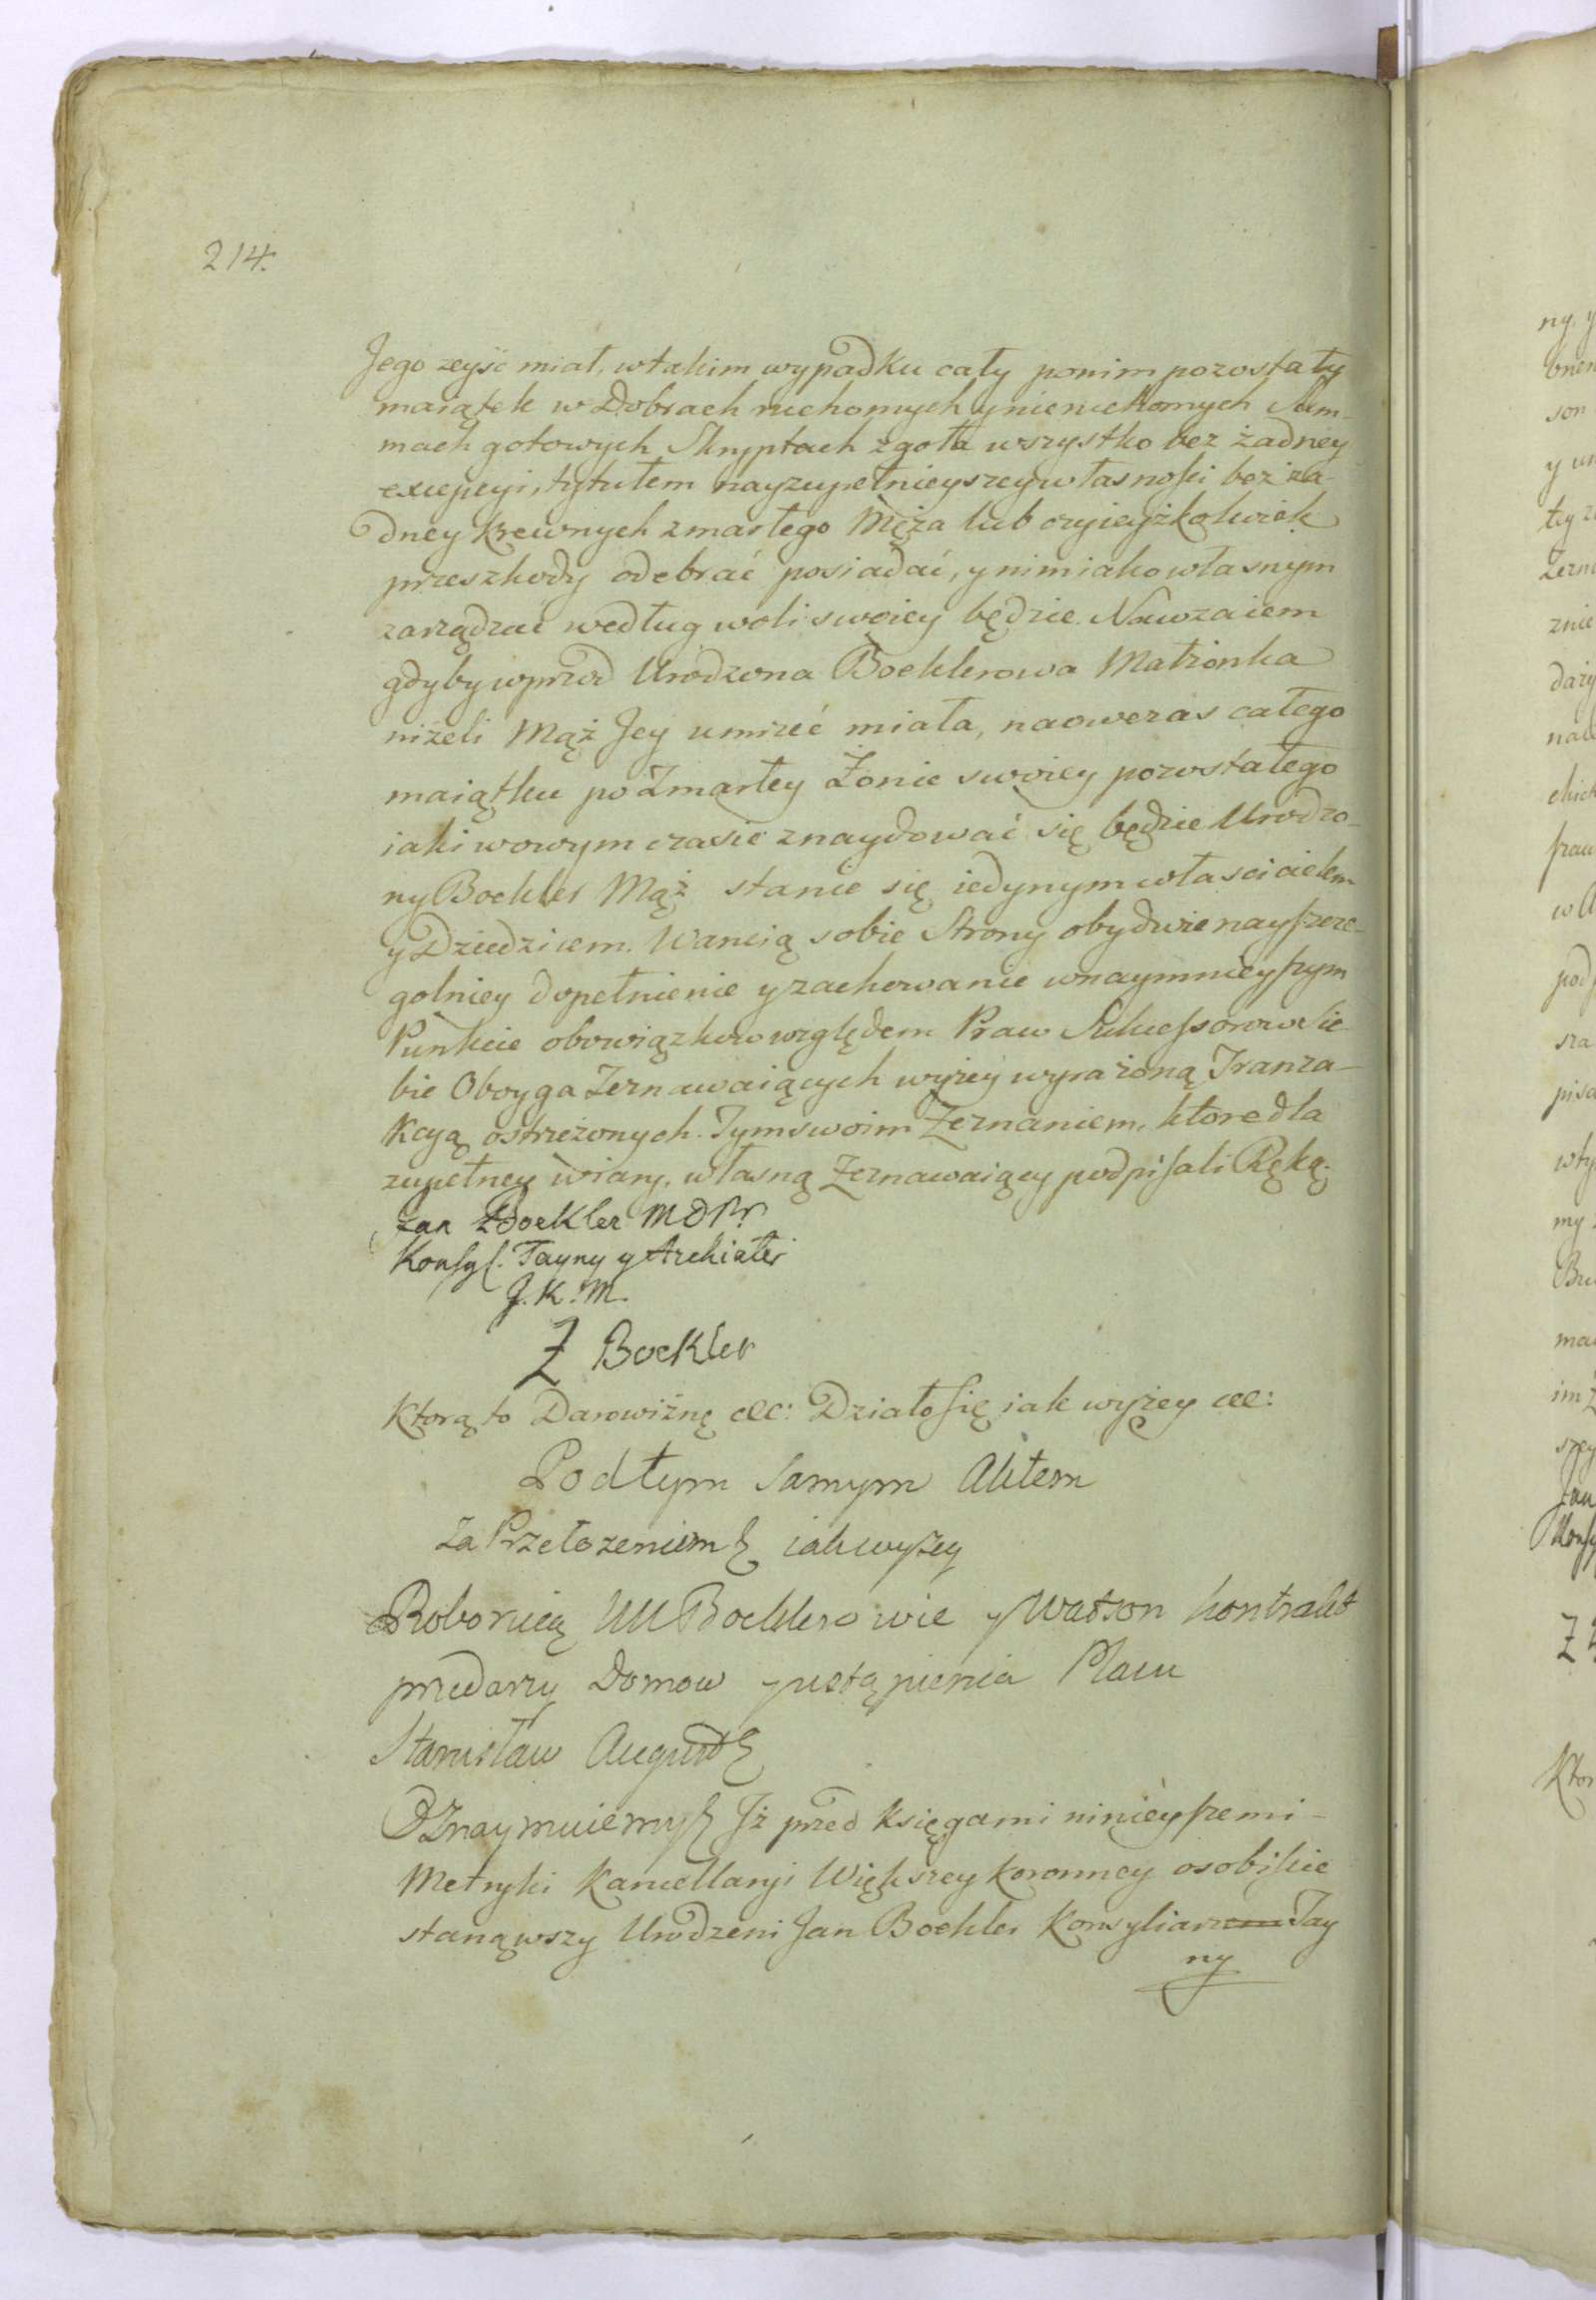 214.
Jego zeyśc miał, w takim wypadku cały ponim pozostały
maiątek w Dobrach ruchomych y nieruchomych Sum-
mach gotowych Skryptach zgoła wszystko bez żadney
excepcyi, tytułem nayzupełnieyszey własnosci bez ża-
dney Krewnych zmarłego Męża lub czyieyżkolwiek
przeszkody odebrać posiadać, y nim iako własnym
zarządzać według woli swoiey będzie. Nawzaiem
gdyby wprzod Urodzona Boeklerowa Małżonka
niżeli Mąż Jey umrzeć miała, naowczas całego
maiątku po Zmarłey Żonie swoiey pozostałego
iaki wowym czasie znaydować się będzie Urodzo-
ny Boekler Mąż stanie się iedynym własciciclem
y Dziedzicem. Waruią sobie Strony obydwie nayszcze-
golniey dopełnienie y zachowanie wnaymnieyszym
Punkcie obowiązkow względem Praw Sukcessorow Sie-
bie Oboyga Zeznawaiących wyżey wyrażoną Tranza-
kcyą ostrzeżonych. Tym swoim Zeznaniem, ktore dla
zupełney wiary, własną Zeznawaiący podpisali Ręką.
Jan Boekler M D Pr
Konsyl. Tayny y Archiater
J. K. M.
Z Boekler
Ktorą to Darowiznę etc: Działo się iak wyżey etc:
Pod tym samym Aktem
Za Przełozeniem iak wyżey
Roboruią UU Boeklerowie y Watson kontrakt
przedarzy Domow y ustąpienia Placu
Stanisław August
Oznaymuiemy Jż przed Księgami ninieyszemi
Metryki Kancellaryi Większey Koronney osobiscie
stanąwszy Urodzeni Jan Boekler Konsyliarz Tay
ny